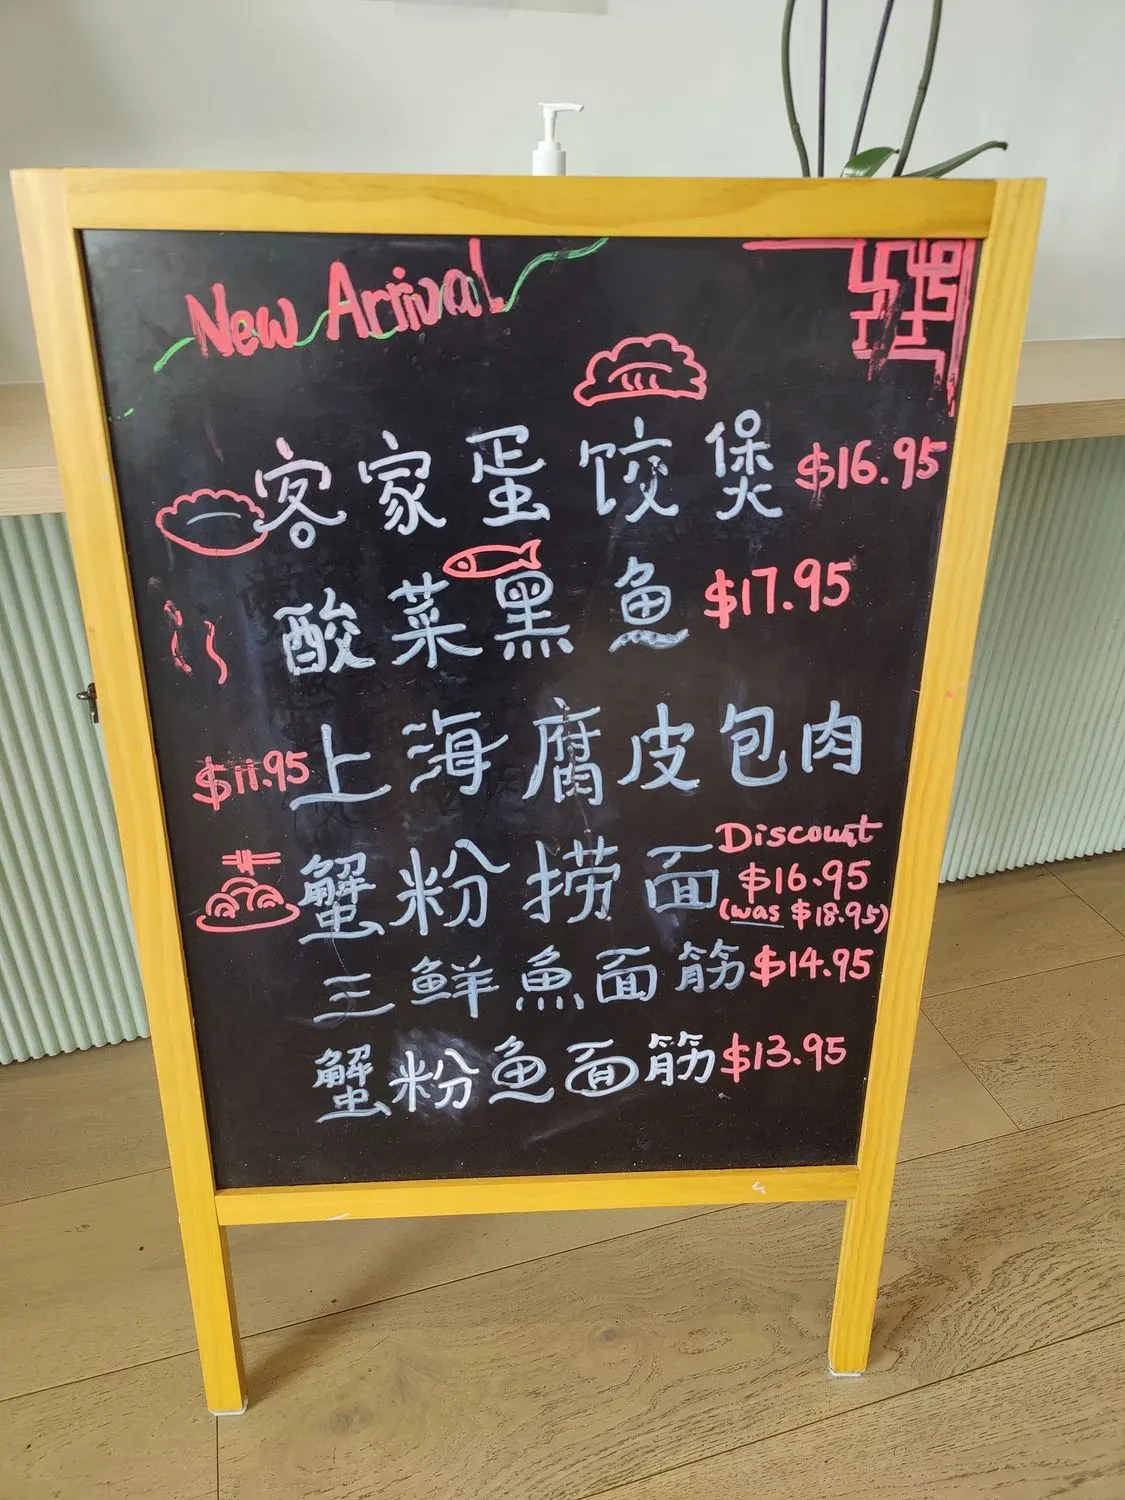 New Arrival
客家蛋饺煲 $16.95
酸菜黑鱼 $17.95
$11.95 上海腐皮包肉
蟹粉捞面 Discount
$16.95
(was $18.95)
三鲜魚面筋 $14.95
蟹粉鱼面筋 $13.95